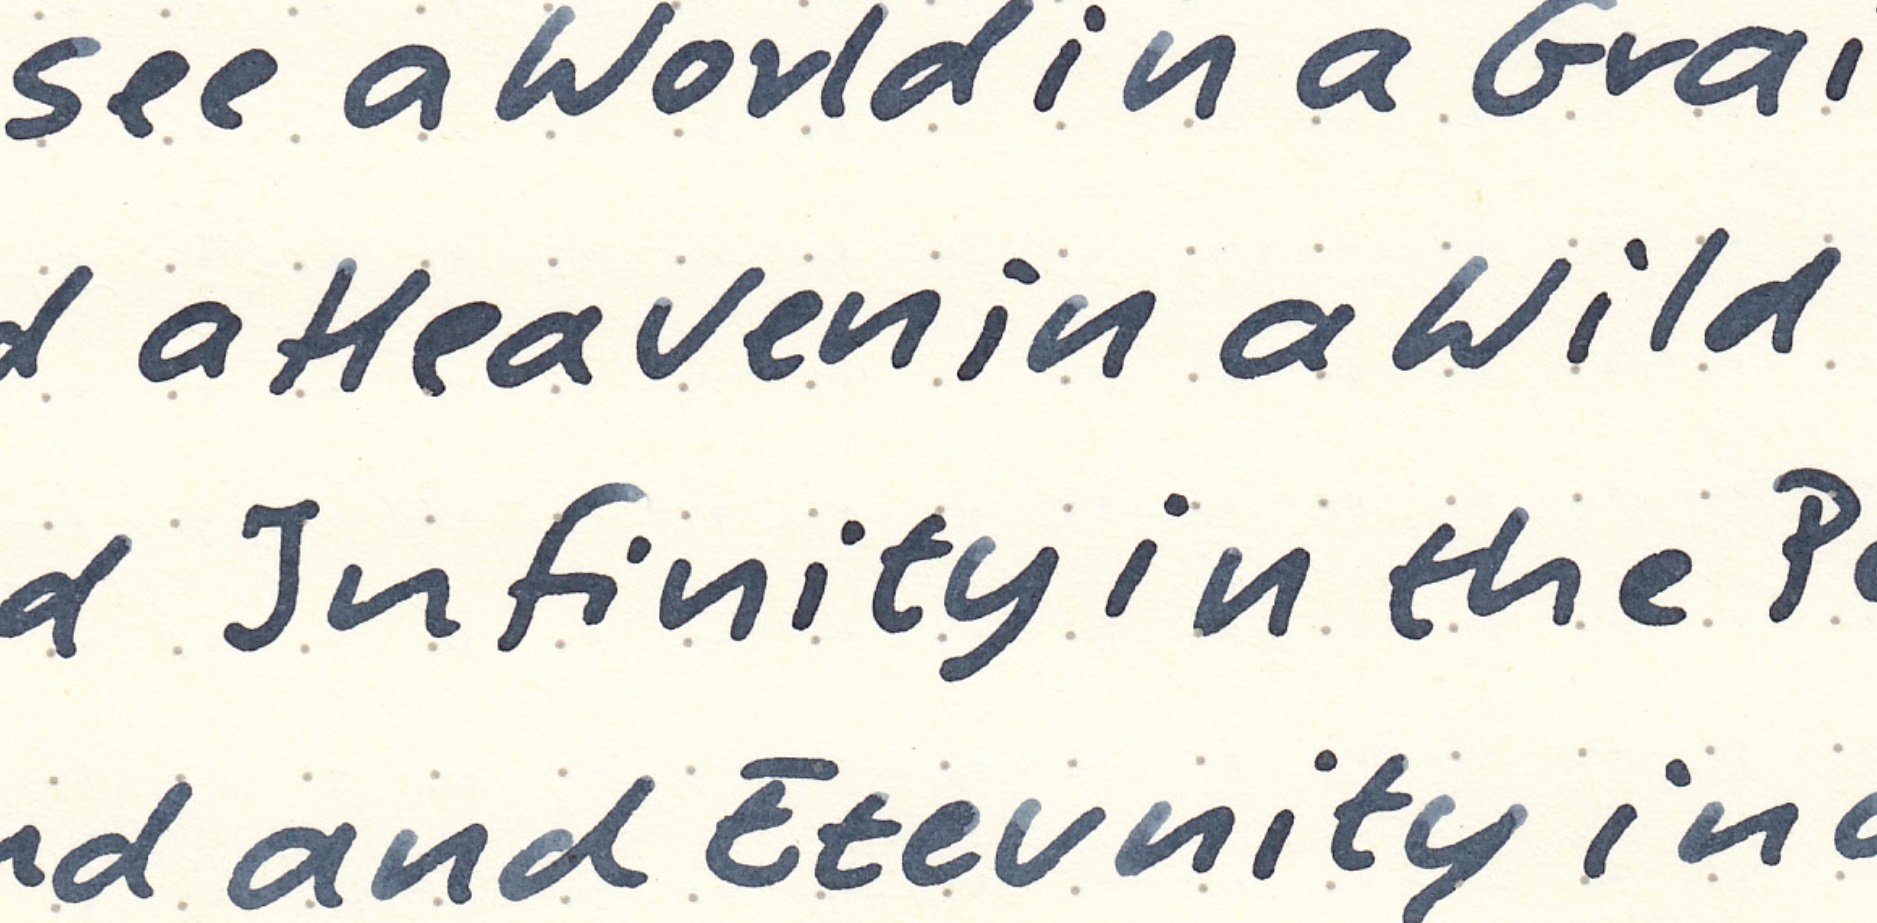 see a World in a Grai
d a Heaven in a Wild
d Infinity in the P
nd and Eternity in a